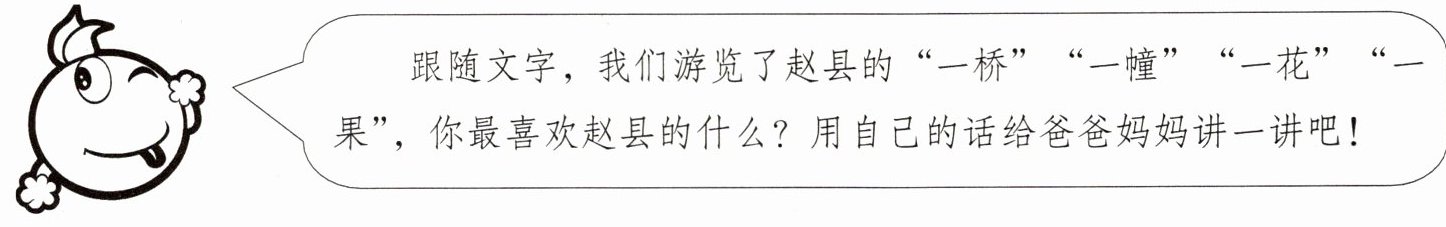 跟随文字，我们游览了赵县的“一桥”“一幢”“一花”“一
果”，你最喜欢赵县的什么？用自己的话给爸爸妈妈讲一讲吧！